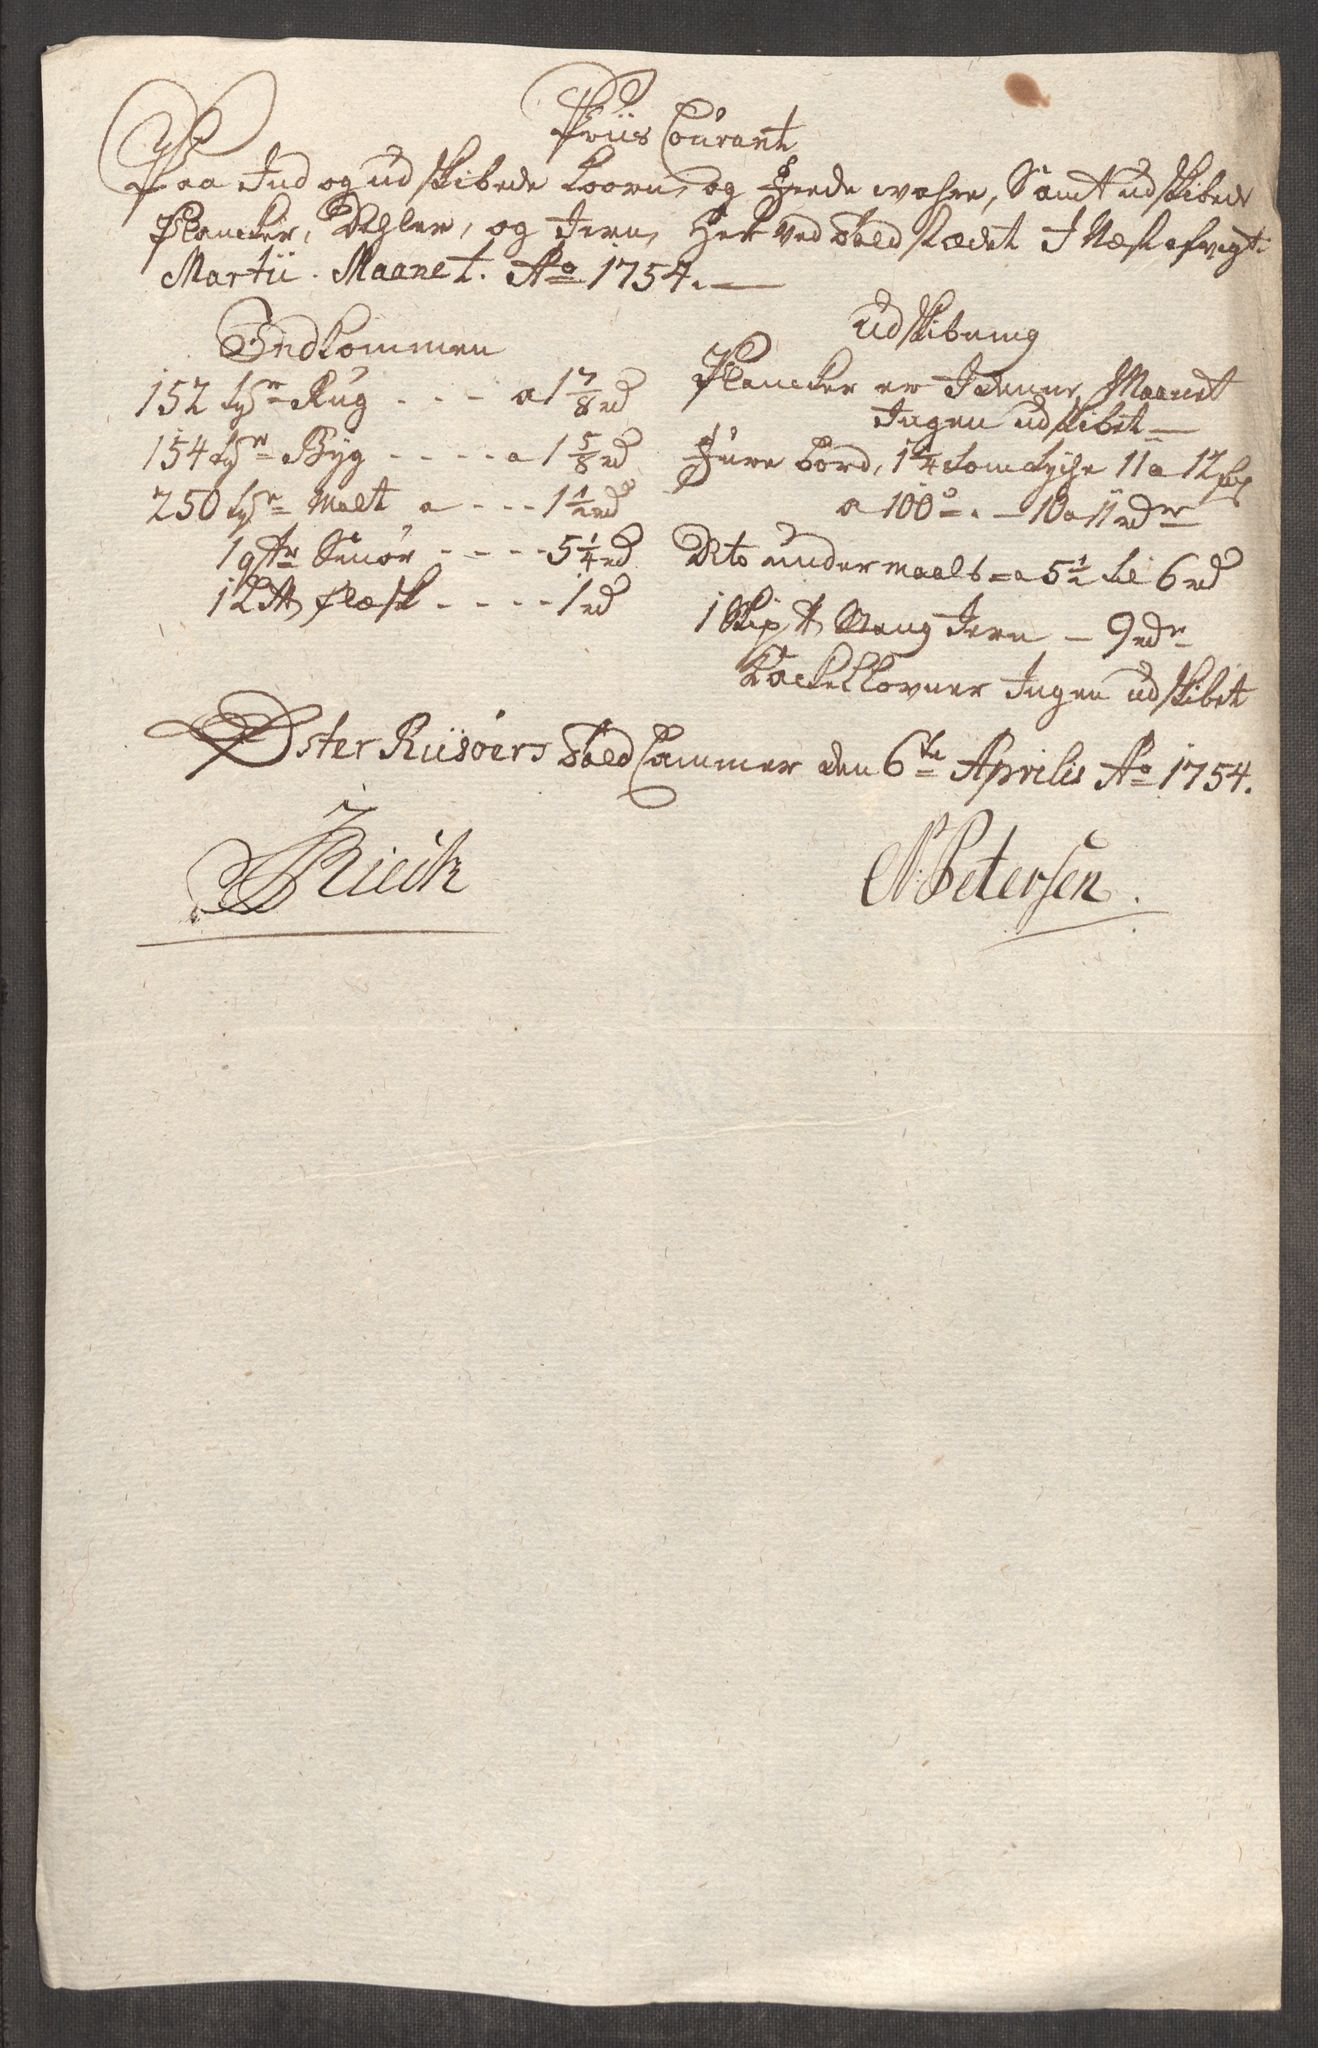 Priis Courant
Paa Ind og udskibede Koorn, og Feede wahre, Samt udskibede
Plancker, Dehler, og Jern, Her Ved Told Stædet I Næst afvigt
Martii Maanet. Ao 1754.
Indkommen
152 tr Rug - - - a 1 7/8 rd
154 tr Byg - - - - a 1 5/8 rd
250 tr Malt a - - - 1 1/2 rd
1 qtr Smør - - - - 5 1/4 rd
1 L℔ flæsk - - - - 1 rd
Udskibning
Plancker er Maanet
Ingen udskibet
Fure bord, 1 1/4 tom tyche 11 a 12 fod
a 100 - 10 a 11 rdr
Dito under maals a 5 1/2 til 6 rd
1 Skip℔ Stang Jern - 9 rdr
Kackelovner Ingen udskibet
Øster Riisøers Told Cammer den 6te Aprilis Ao 1754.
Rieck
N: Petersen.